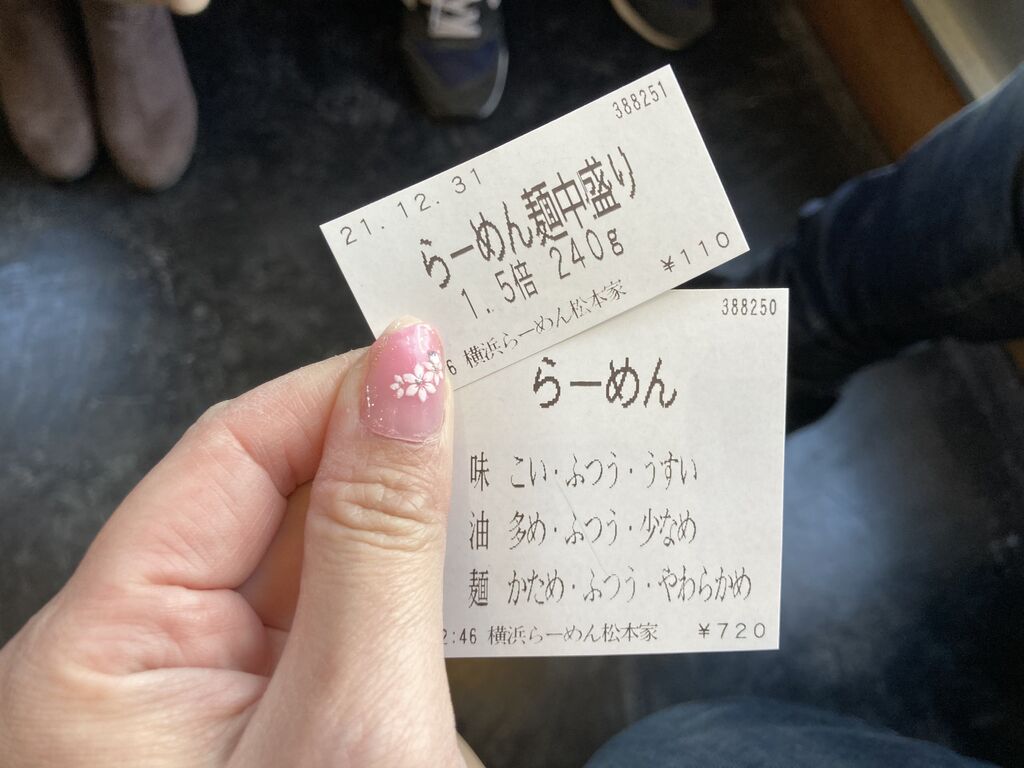 388251
21.12.31
らーめん麺中盛り
1.5倍 240g
¥110
6 横浜らーめん松本家
388250
らーめん
味 こい・ふつう・うすい
油 多め・ふつう・少なめ
麺 かため・ふつう・やわらかめ
2:46 横浜らーめん松本家 ¥720